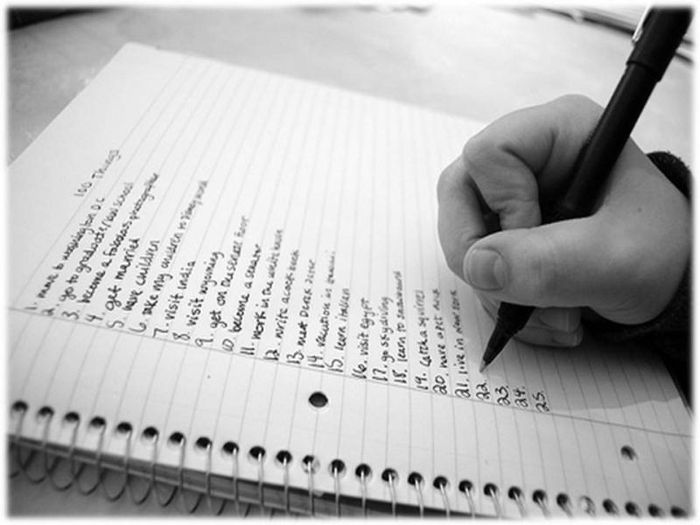 100 Things
1. move to washington D.C
2. go to graduate/law school
3. become a photographer
4. get married
5. have children
6. take my children to disney world
7. visit India
8. visit wyoming
9. get on the senate floor
10. become a senator
11. work in the white house
12. write a cook book
13. meet Derek Jeter
14. vacation in
15. learn italian
16. visit Egypt
17. go skydiving
18. learn to snowboard
19. catch a squirrel
20. have a pet
21. live in New York
22.
23.
24.
25.